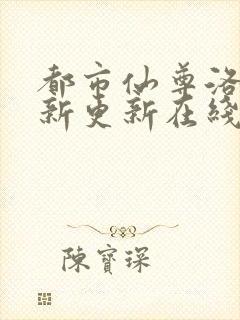 都市仙尊洛
新更新在綫
陳寶琛